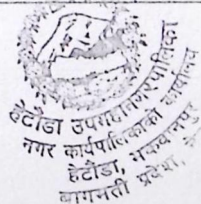 हेटौंडा उपमहानगरपालिका
नगर कार्यपालिकाको कार्यालय
हेटौंडा, मकवानपुर
बागमती प्रदेश,